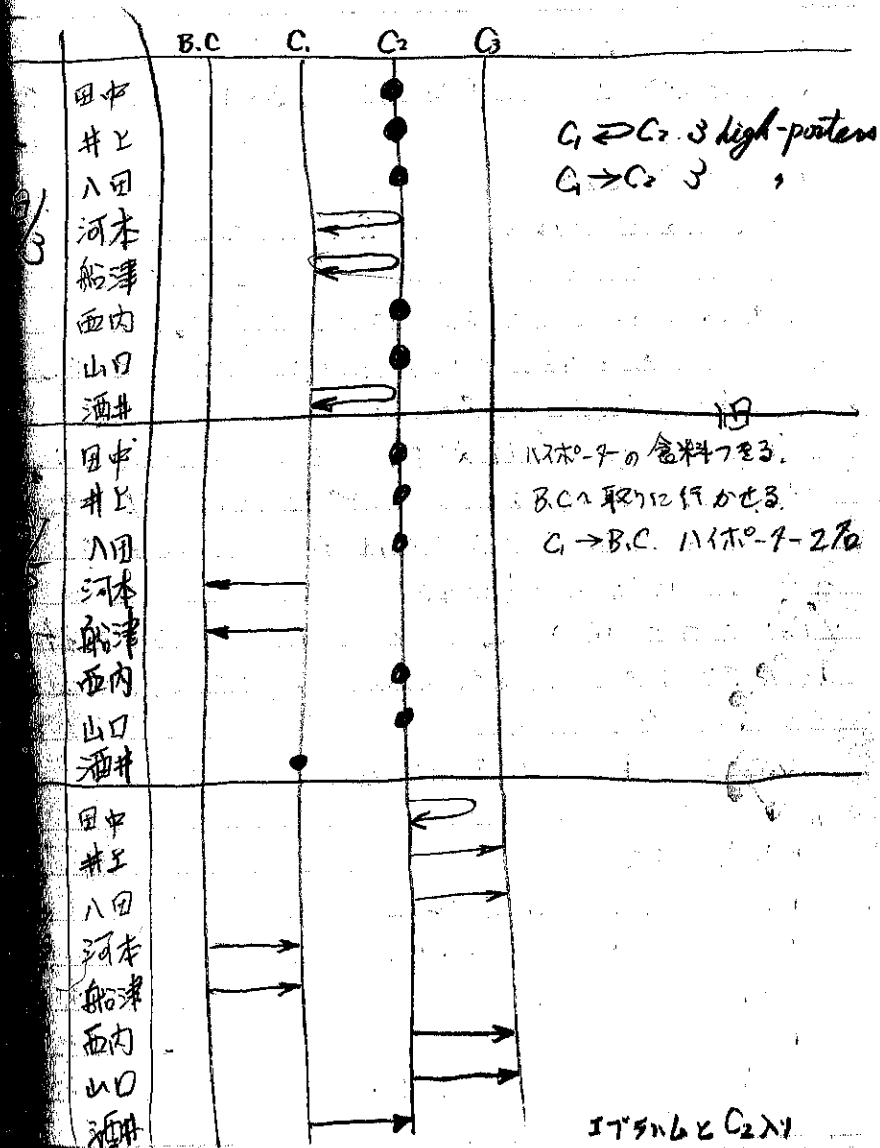 B.C C1 C2 C3
田中
井上
八田
河本
船津
西内
山口
酒井
C1 ⇄ C2 3 high-porters
C1 → C2 3 〃
田中
井上
八田
河本
船津
西内
山口
酒井
ハイポーターの食料つきる.
B.Cへ取りに行かせる
C1 → B.C. ハイポーター2名
田中
井上
八田
河本
船津
西内
山口
酒井
イブラハムとC2入り